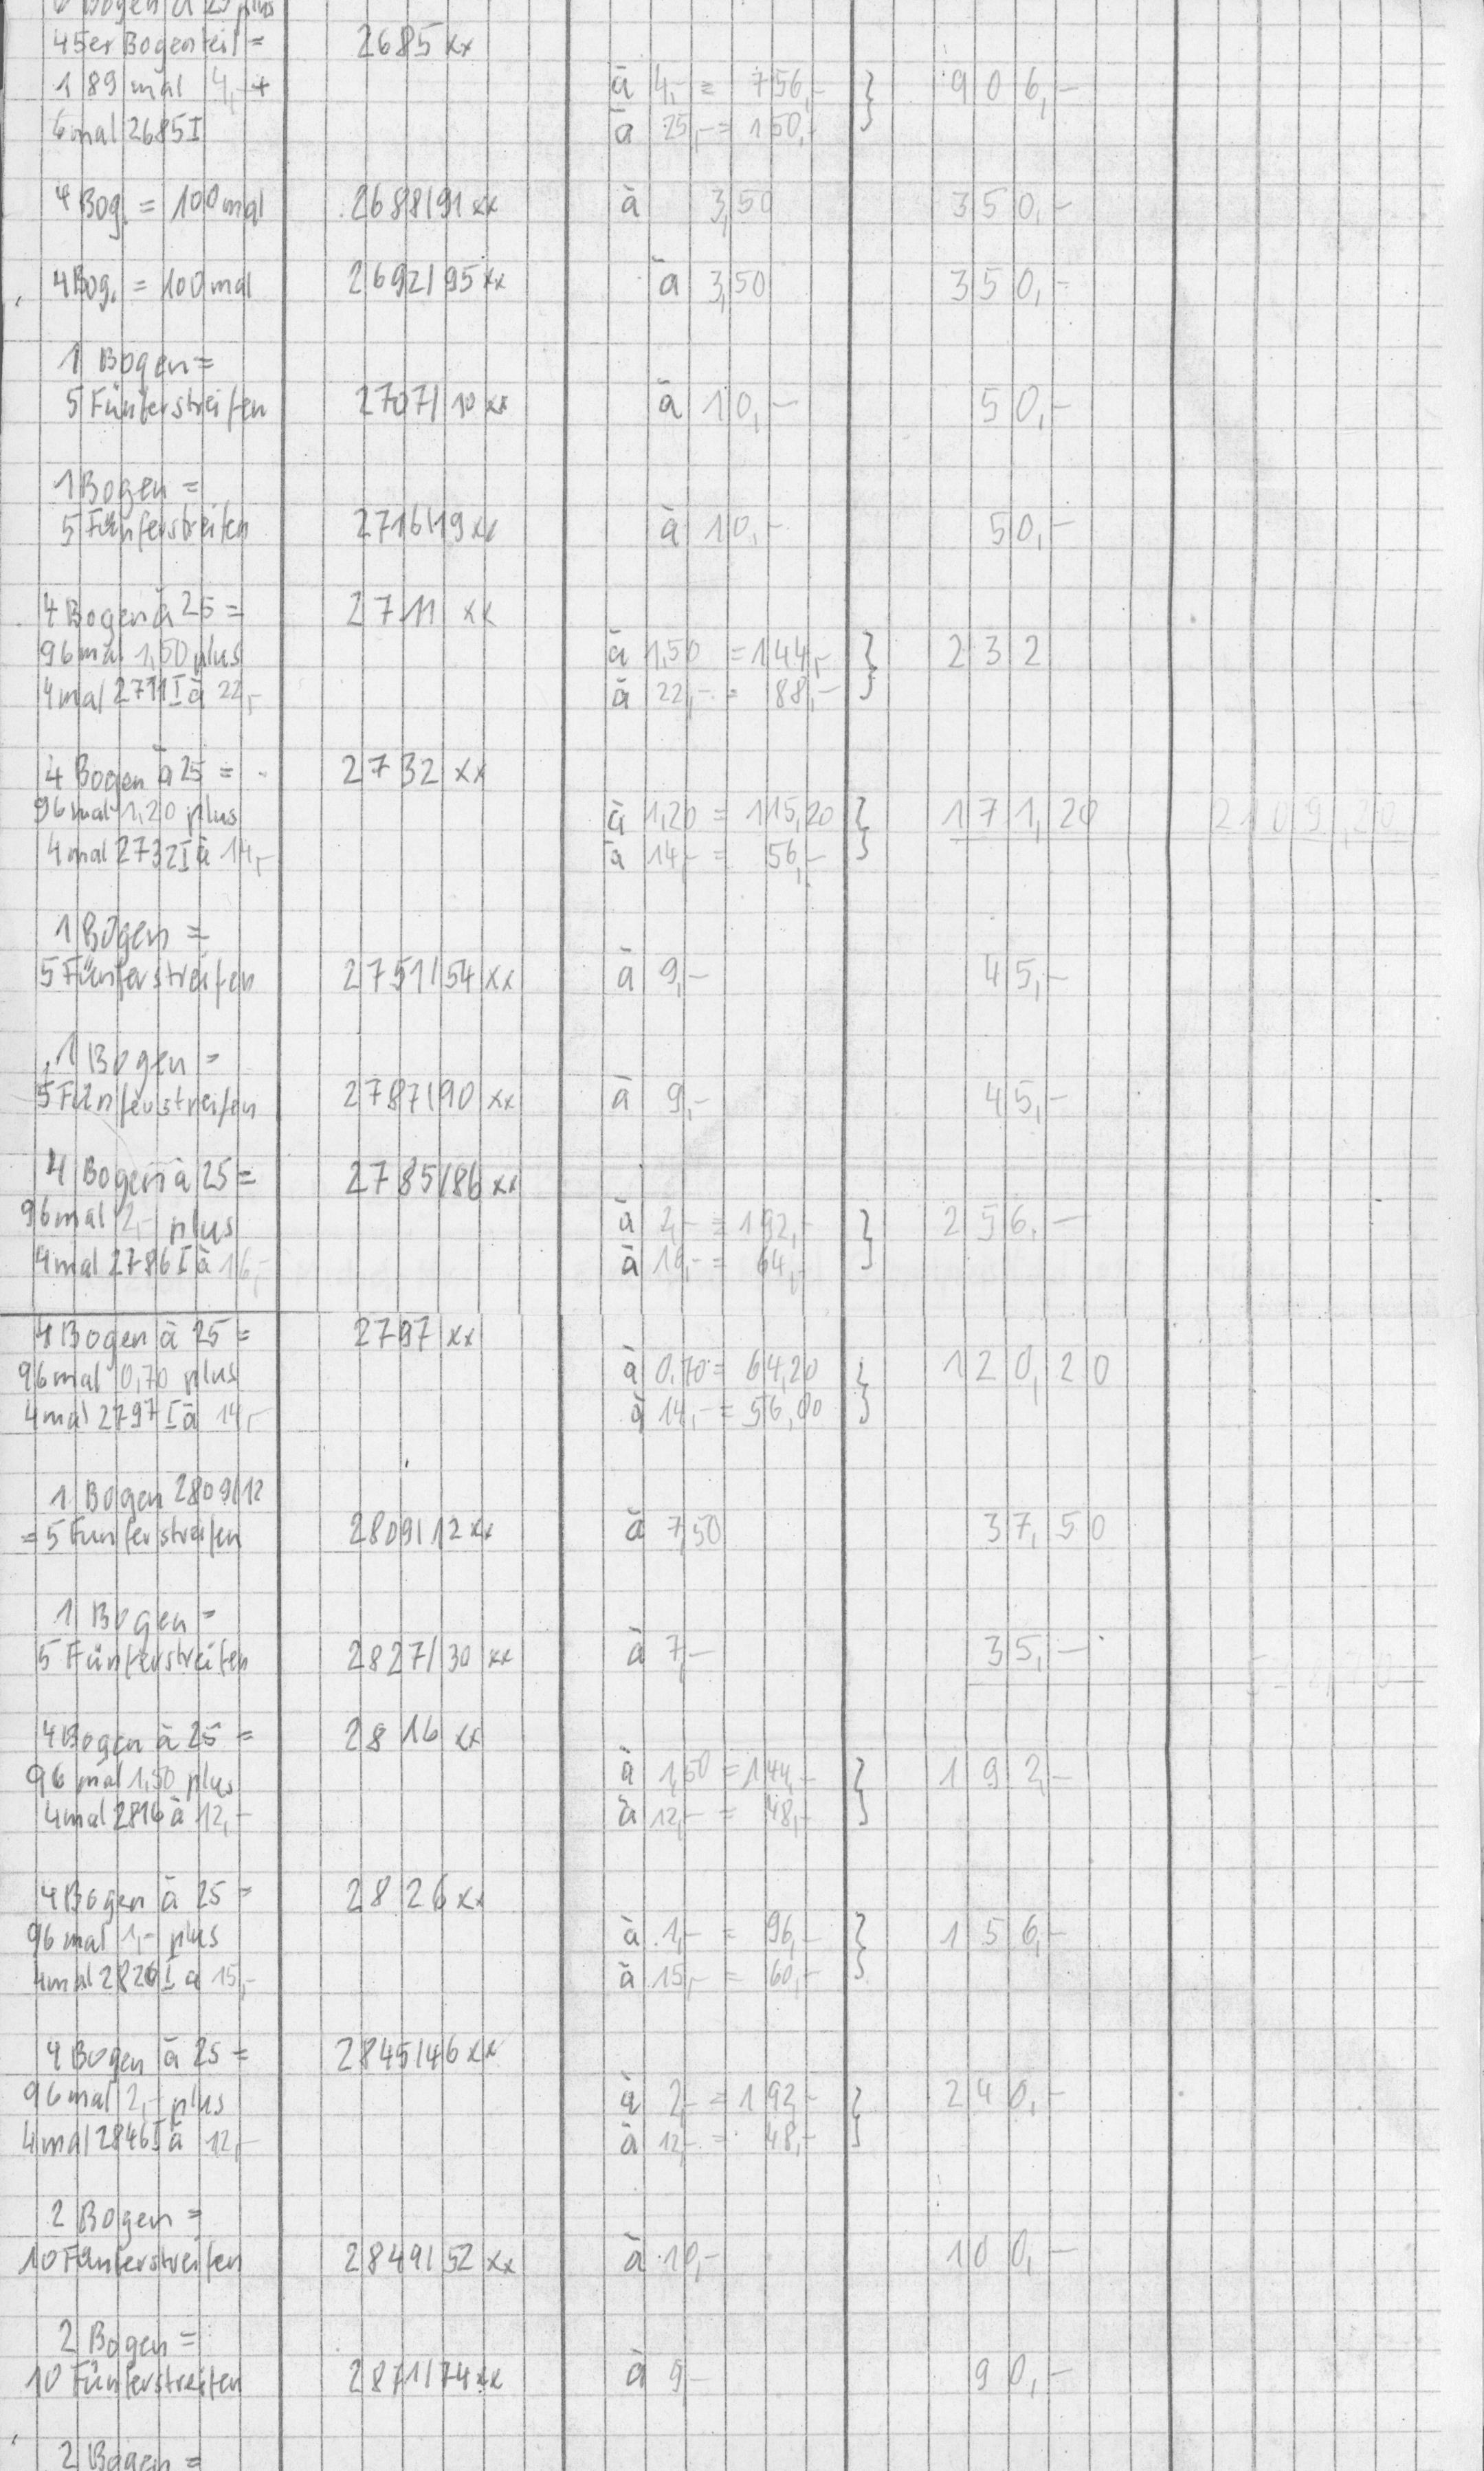 6 Bogen à 25 plus
45er Bogenteil = 2685 xx
189 mal 4,- + à 4,- = 756,- } 906,-
6 mal 2685 I à 25,- = 150,-
4 Bog. = 100 mal 2688/91 xx à 3,50 350,-
4 Bog. = 100 mal 2692/95 xx à 3,50 350,-
1 Bogen =
5 Fünferstreifen 2707/10 xx à 10,- 50,-
1 Bogen =
5 Fünferstreifen 2716/19 xx à 10,- 50,-
4 Bogen à 25 = 2711 xx
96 mal 1,50 plus à 1,50 = 144,- } 232
4 mal 2711 I à 22,- à 22,- = 88,-
4 Bogen à 25 = 2732 xx
96 mal 1,20 plus à 1,20 = 115,20 } 171,20 2109,20
4 mal 2732 I à 14,- à 14,- = 56,-
1 Bogen =
5 Fünferstreifen 2751/54 xx à 9,- 45,-
1 Bogen =
5 Fünferstreifen 2787/90 xx à 9,- 45,-
4 Bogen à 25 = 2785/86 xx
96 mal 2,- plus à 2,- = 192,- } 256,-
4 mal 2786 I à 16,- à 16,- = 64,-
4 Bogen à 25 = 2797 xx
96 mal 0,70 plus à 0,70 = 64,20 } 120,20
4 mal 2797 I à 14,- à 14,- = 56,00
1 Bogen 2809/12
= 5 Fünferstreifen 2809/12 xx à 7,50 37,50
1 Bogen =
5 Fünferstreifen 2827/30 xx à 7,- 35,-
4 Bogen à 25 = 2816 xx
96 mal 1,50 plus à 1,50 = 144,- } 192,-
4 mal 2816 à 12,- à 12,- = 48,-
4 Bogen à 25 = 2826 xx
96 mal 1,- plus à 1,- = 96,- } 156,-
4 mal 2826 I à 15,- à 15,- = 60,-
4 Bogen à 25 = 2845/46 xx
96 mal 2,- plus à 2,- = 192,- } 240,-
4 mal 2846 I à 12,- à 12,- = 48,-
2 Bogen =
10 Fünferstreifen 2849/52 xx à 10,- 100,-
2 Bogen =
10 Fünferstreifen 2871/74 xx à 9,- 90,-
2 Bogen =